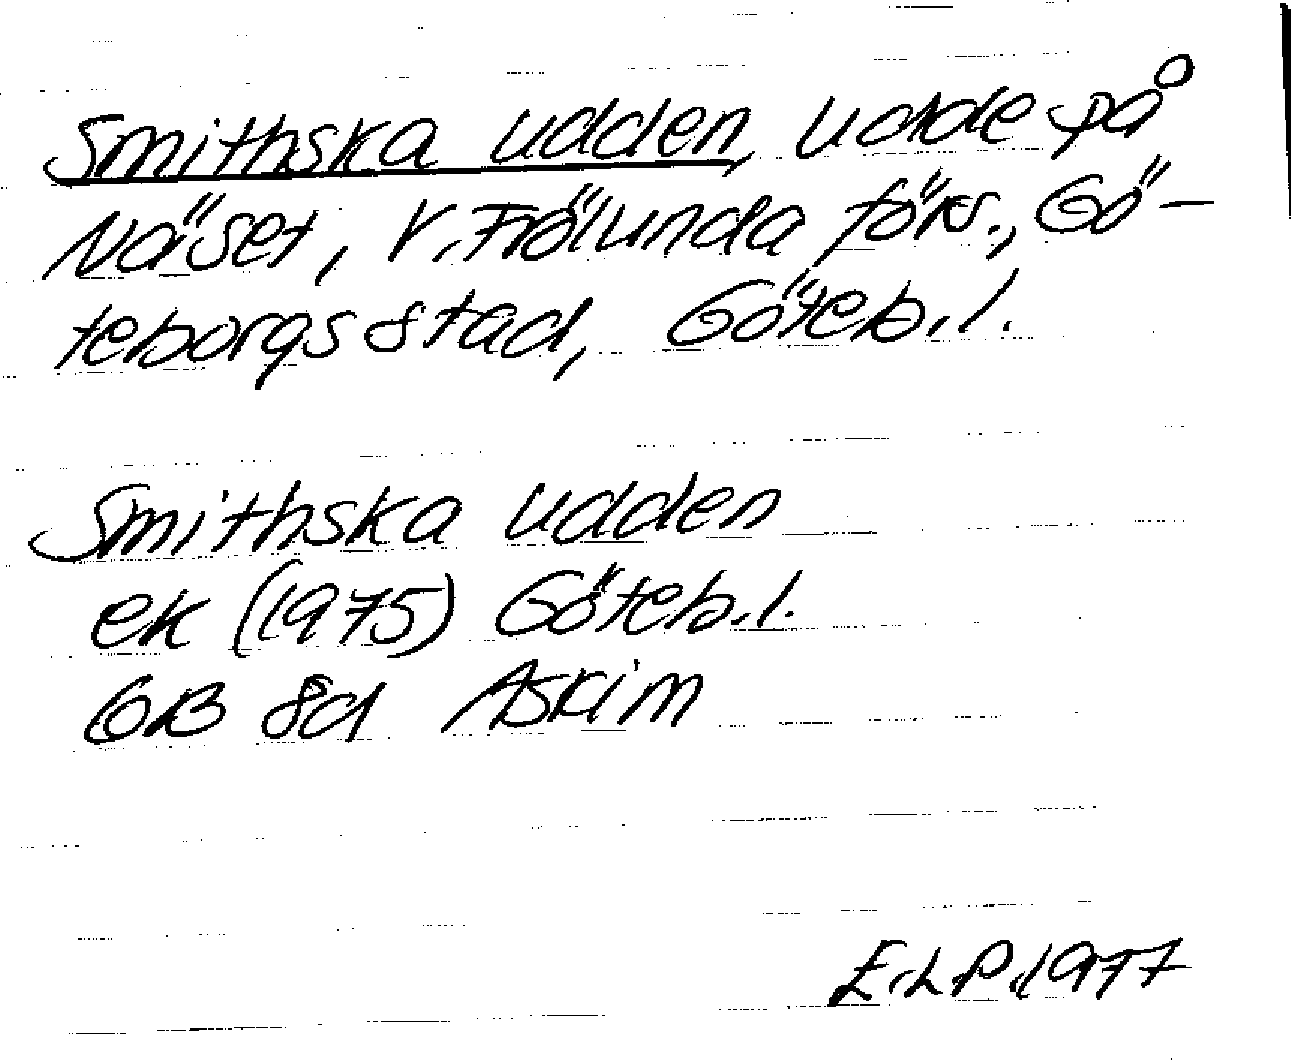 Smithska udden, udde på
Näset, V. Frölunda förs., Gö-
teborgs stad, Göteb. l.
Smithska udden
ek (1975) Göteb. l.
GB 8d Askim
E.LP. 1977